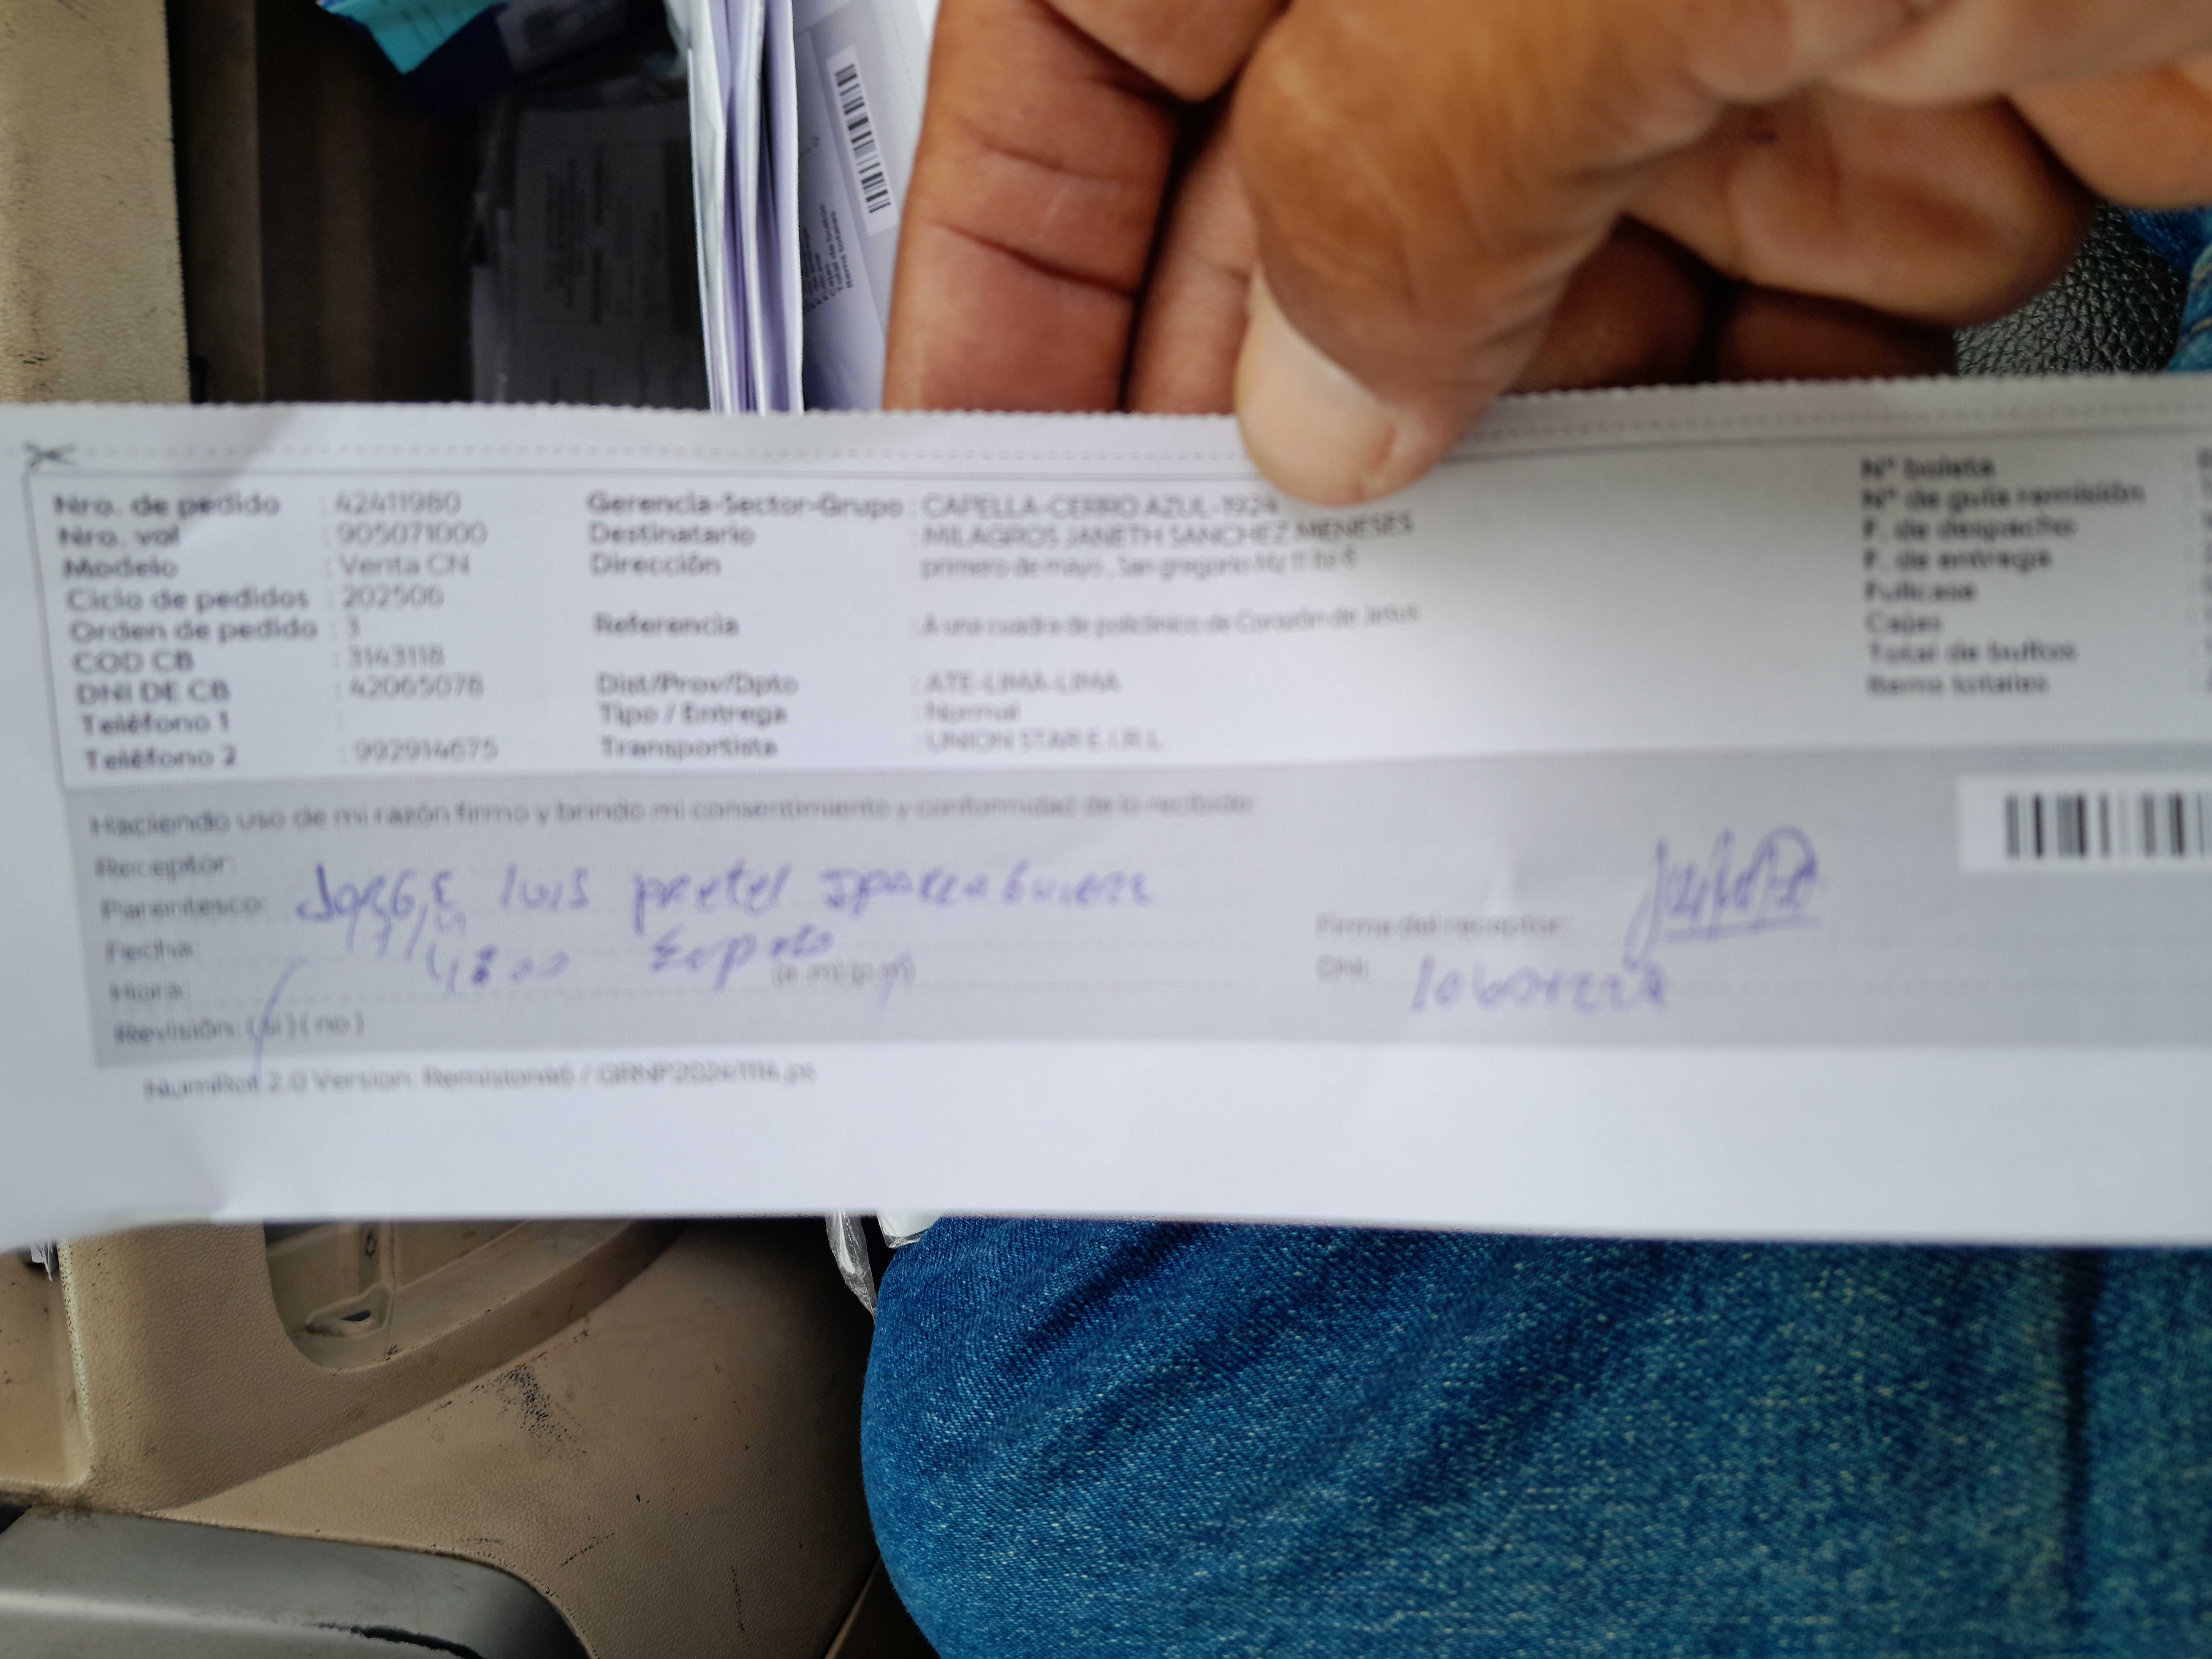 Nro. de pedido : 42411980
Nro. val : 905071000
Modelo : Venta CN
Ciclo de pedidos : 202506
Orden de pedido : 3
COD CB : 3143118
DNI DE CB : 42065078
Teléfono 1 :
Teléfono 2 : 992914675
Gerencia-Sector-Grupo : CAPELLA-CERRO AZUL-1924
Destinatario : MILAGROS JANETH SANCHEZ MENESES
Dirección : primero de mayo, San gregorio Mz 11 lto 6
Referencia : A una cuadra de policlinico de Corazón de Jesus
Dist/Prov/Dpto : ATE-LIMA-LIMA
Tipo / Entrega : Normal
Transportista : UNION STAR E.I.R.L.
N° boleta
N° de guía remisión
F. de despacho
F. de entrega
Fullcase
Cajas
Total de bultos
Items totales
Haciendo uso de mi razón firmo y brindo mi consentimiento y conformidad de lo recibido:
Receptor:
Parentesco: Jorge Luis Pretel
Fecha:
Hora: (a.m) (p.m)
Revisión: (si) (no)
Firma del receptor:
DNI:
NumRot 2.0 Version: Remision46 / GRNP20241114.ps